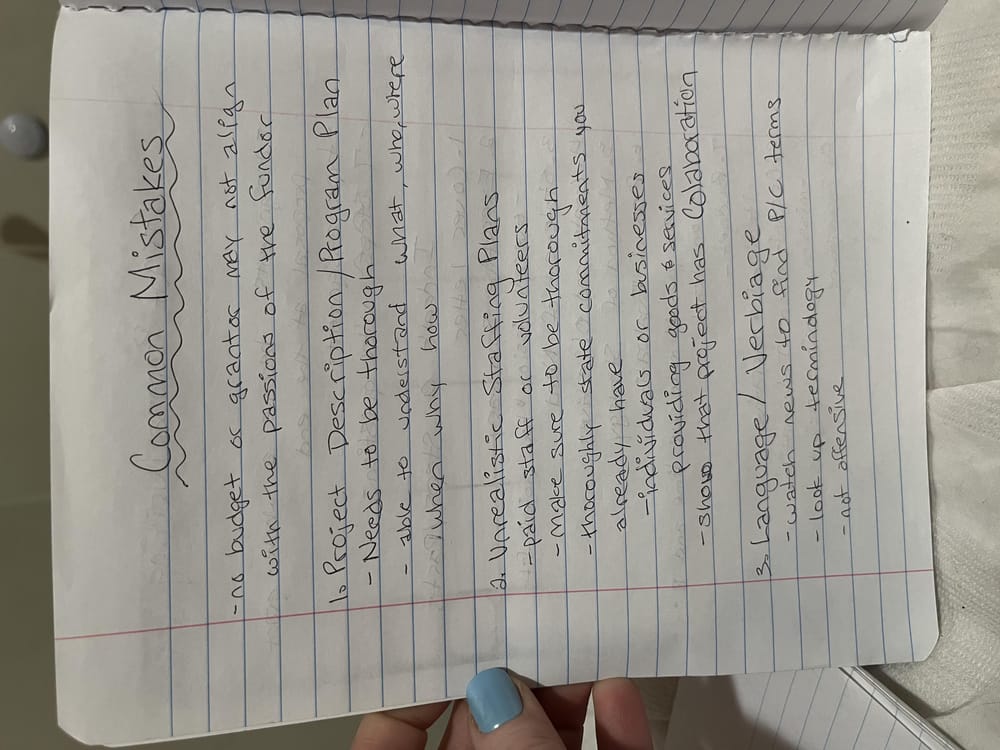 Common Mistakes
- no budget or grantor may not align
with the passions of the fundor
1. Project Description/Program Plan
- Needs to be thorough
- able to understand what, who, where
when why how
2. Unrealistic Staffing Plans
- paid staff or volunteers
- make sure to be thorough
- thoroughly state commitments you
already have
- individuals or businesses
providing goods & services
- shows that project has Colaboration
3. Language / Verbiage
- watch news to find P/C terms
- look up terminology
- not offensive